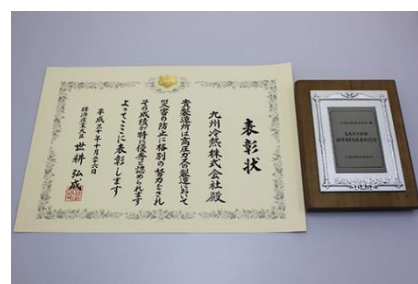 表彰状
九州冷熱株式会社殿
貴製造所は高圧ガスの製造において
災害の防止に格別の努力をされ
その成績が特に優秀と認められます
よってここに表彰します
平成三十年十月二十六日
経済産業大臣 世耕 弘成